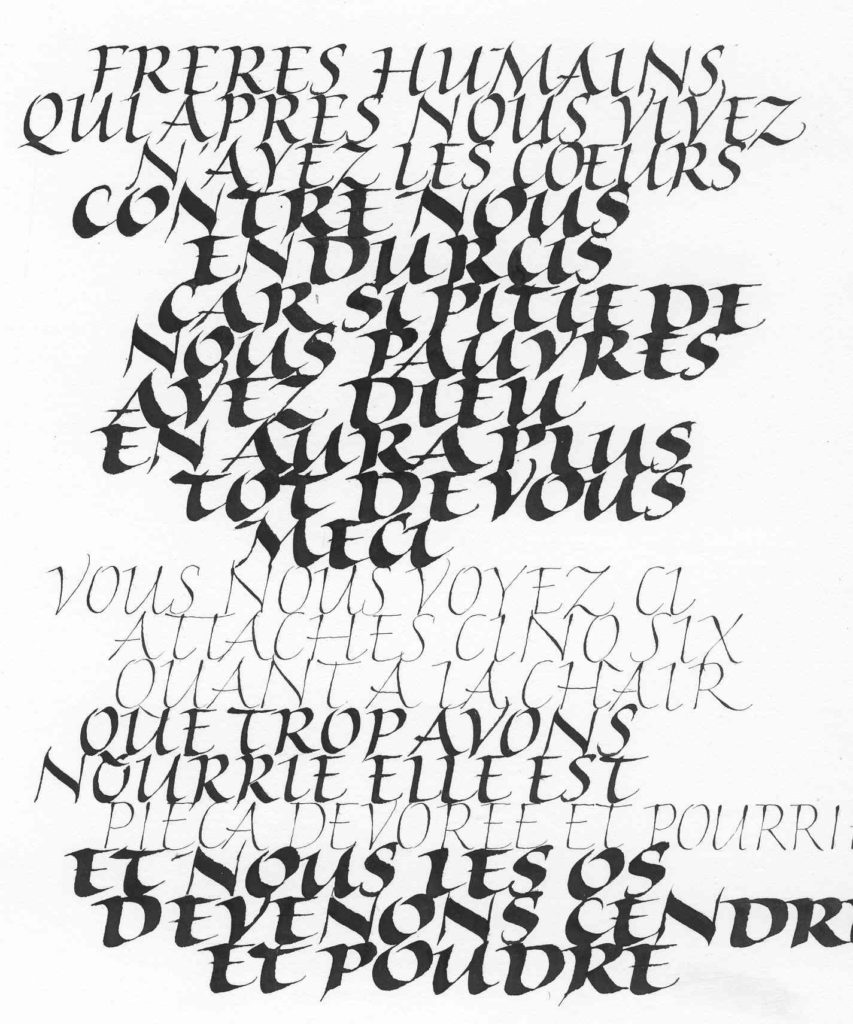 FRERES HUMAINS
QUI APRES NOUS VIVEZ
N'AYEZ LES CŒURS
CONTRE NOUS
ENDURCIS
CAR SI PITIE DE
NOUS PAUVRES
AVEZ DIEU
EN AURA PLUS
TOT DE VOUS
MECI
VOUS NOUS VOYEZ CI
ATTACHES CINQ SIX
QUANT A LA CHAIR
QUE TROP AVONS
NOURRIE ELLE EST
PIECA DEVOREE ET POURRI
ET NOUS LES OS
DEVENONS CENDR
ET POUDRE